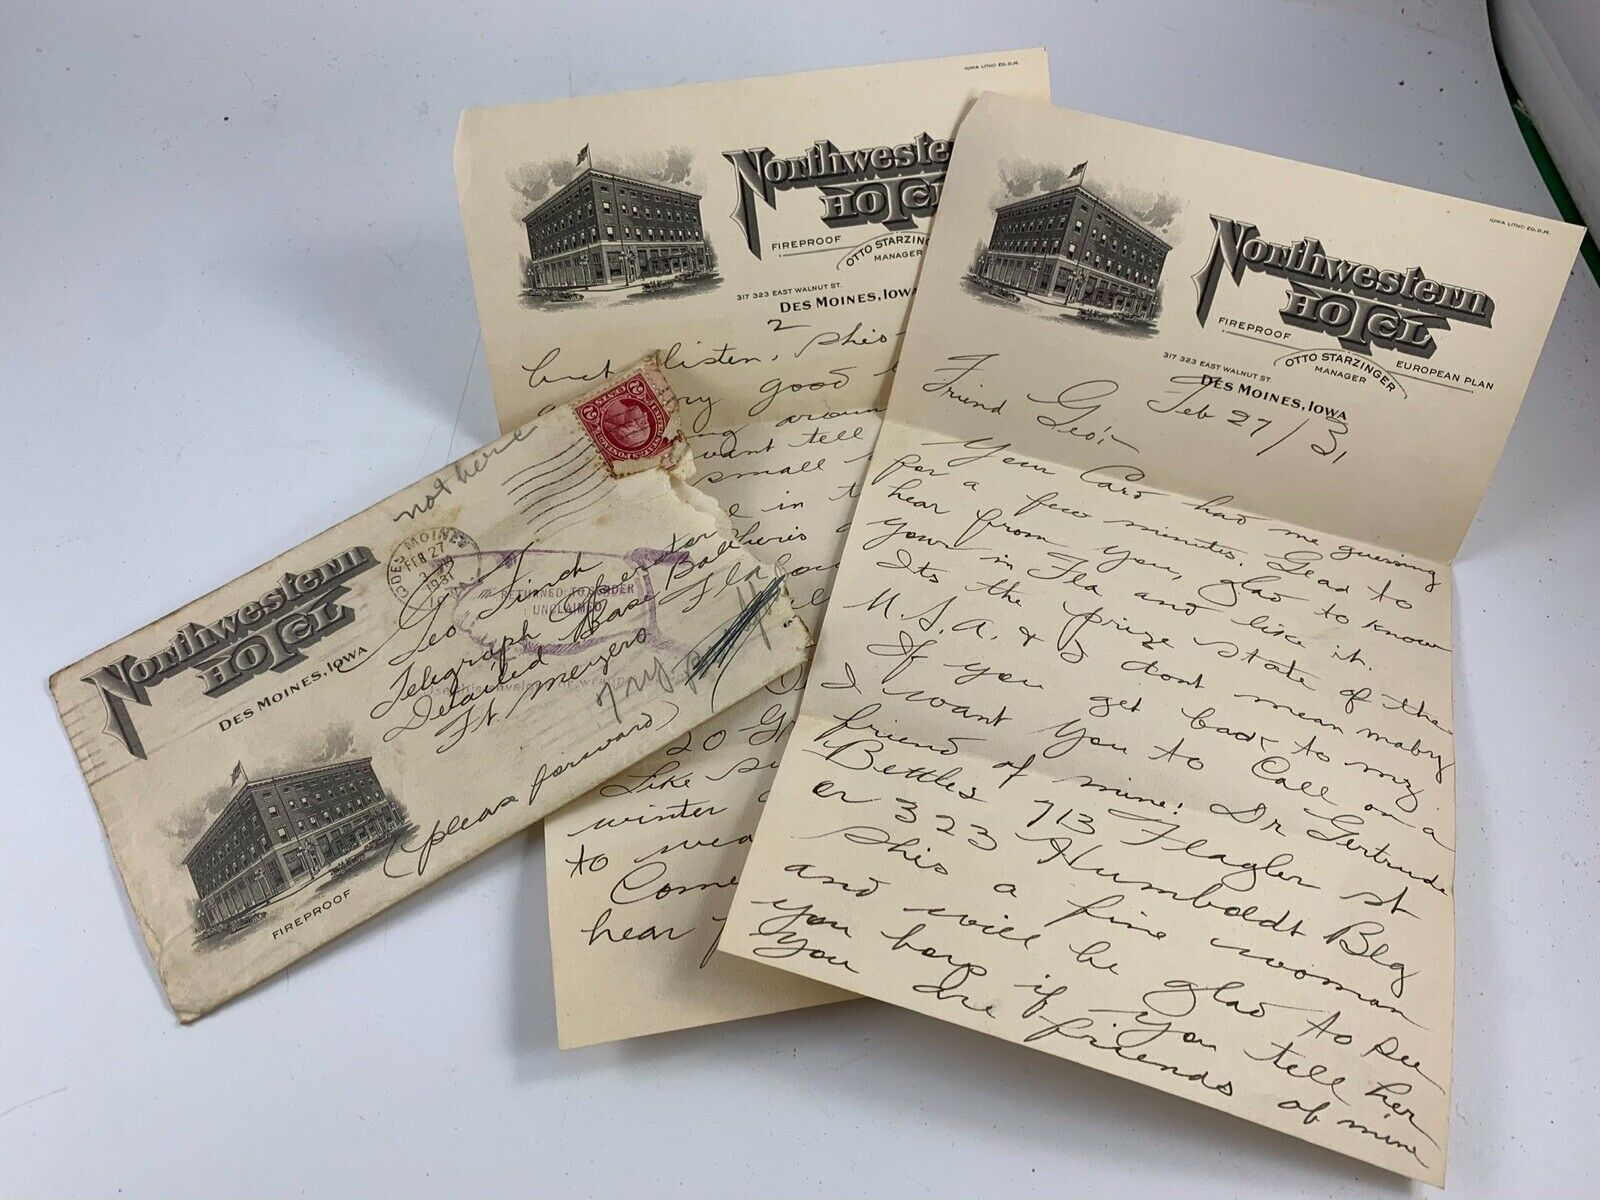 not here
DES MOINES
FEB 27
1931
2 CENTS 2
RETURNED TO
UNCLAIMED
Northwestern
HOTEL
DES MOINES, IOWA
FIREPROOF
Geo Finch
Telegraph Operator
Detailed Base
Ft Meyers Fla
Try
(please forward)
IOWA LITHO CO. D.M.
Northweste
HOTEL
FIREPROOF
OTTO STARZING
MANAGER
317 323 EAST WALNUT ST.
DES MOINES, IOWA
2
but listen, shis
good
aroun
want tell
small
in
20
Like
winter
to wea
Come
hear
IOWA LITHO CO. D.M.
Northwestern
HOTEL
FIREPROOF
OTTO STARZINGER
MANAGER
EUROPEAN PLAN
317 323 EAST WALNUT ST.
DES MOINES, IOWA
Feb 27/31
Friend Geo:-
Your Card had me guesing
for a few minutes. Glad to
hear from you, glad to know
your in Fla and like it.
Its the prize state of the
U.S.A. & I dont mean mabry
If you get back to my
I want you to Call on a
friend of mine: Dr Gertrude
Bettles 713 Flagler st
or 323 Humboldt Blg
Shis a fine woman
and will be glad to see
you boys if you tell her
you are friends of mine